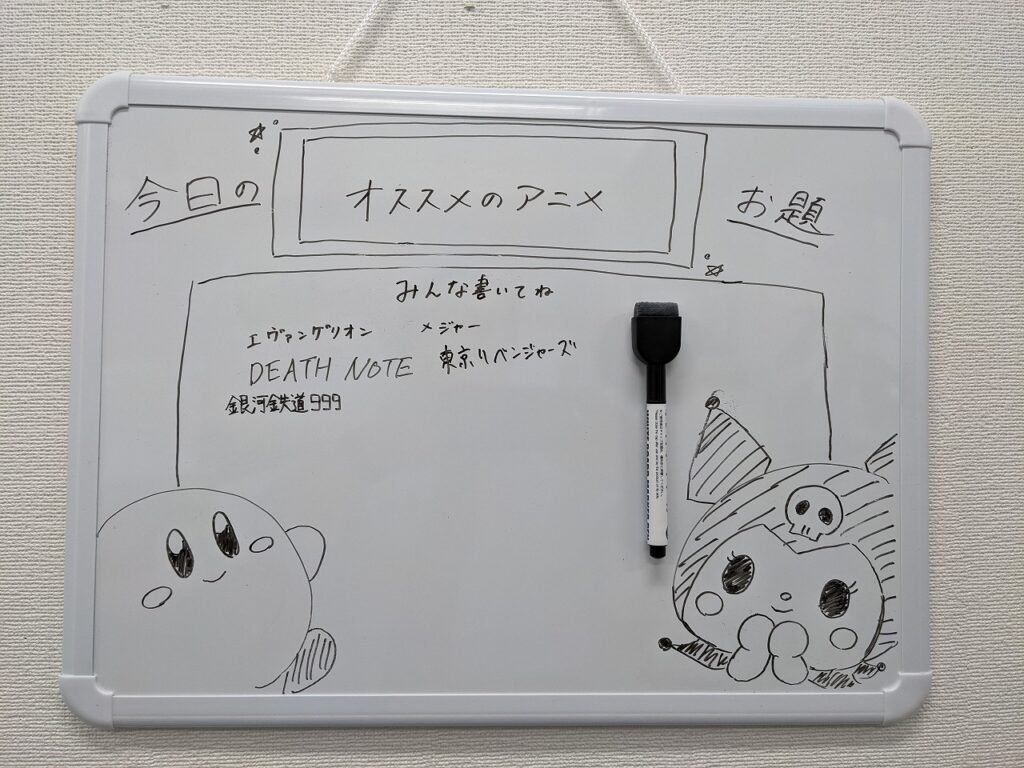 今日の
オススメのアニメ
お題
みんな書いてね
エヴァンゲリオン
メジャー
DEATH NOTE
東京リベンジャーズ
銀河鉄道999